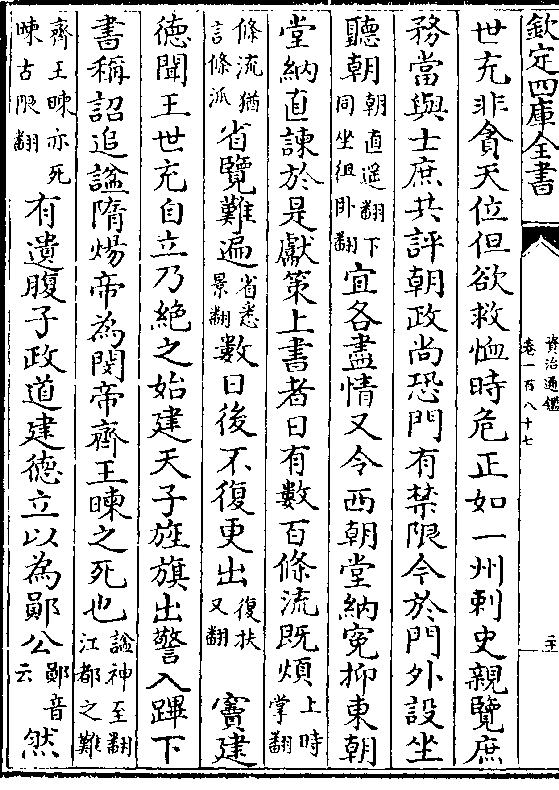 欽定四庫全書
資治通鑑
卷一百八十七
世充非貪天位但欲救恤時危正如一州刺史親覽庶
務當與士庶共評朝政尚恐門有禁限今於門外設坐
聽朝朝直遥翻下同坐徂卧翻宜各盡情又令西朝堂納寃抑東朝
堂納直諫於是獻策上書者日有數百條流既煩上時掌翻
條流猶言條派省覽難遍省悉景翻數日後不復更出復扶又翻 竇建
徳聞王世充自立乃絶之始建天子旌旗出警入蹕下
書稱詔追諡隋煬帝為閔帝齊王暕之死也諡神至翻江都之難
齊王暕亦死暕古限翻有遺腹子政道建徳立以為鄖公鄖音云然